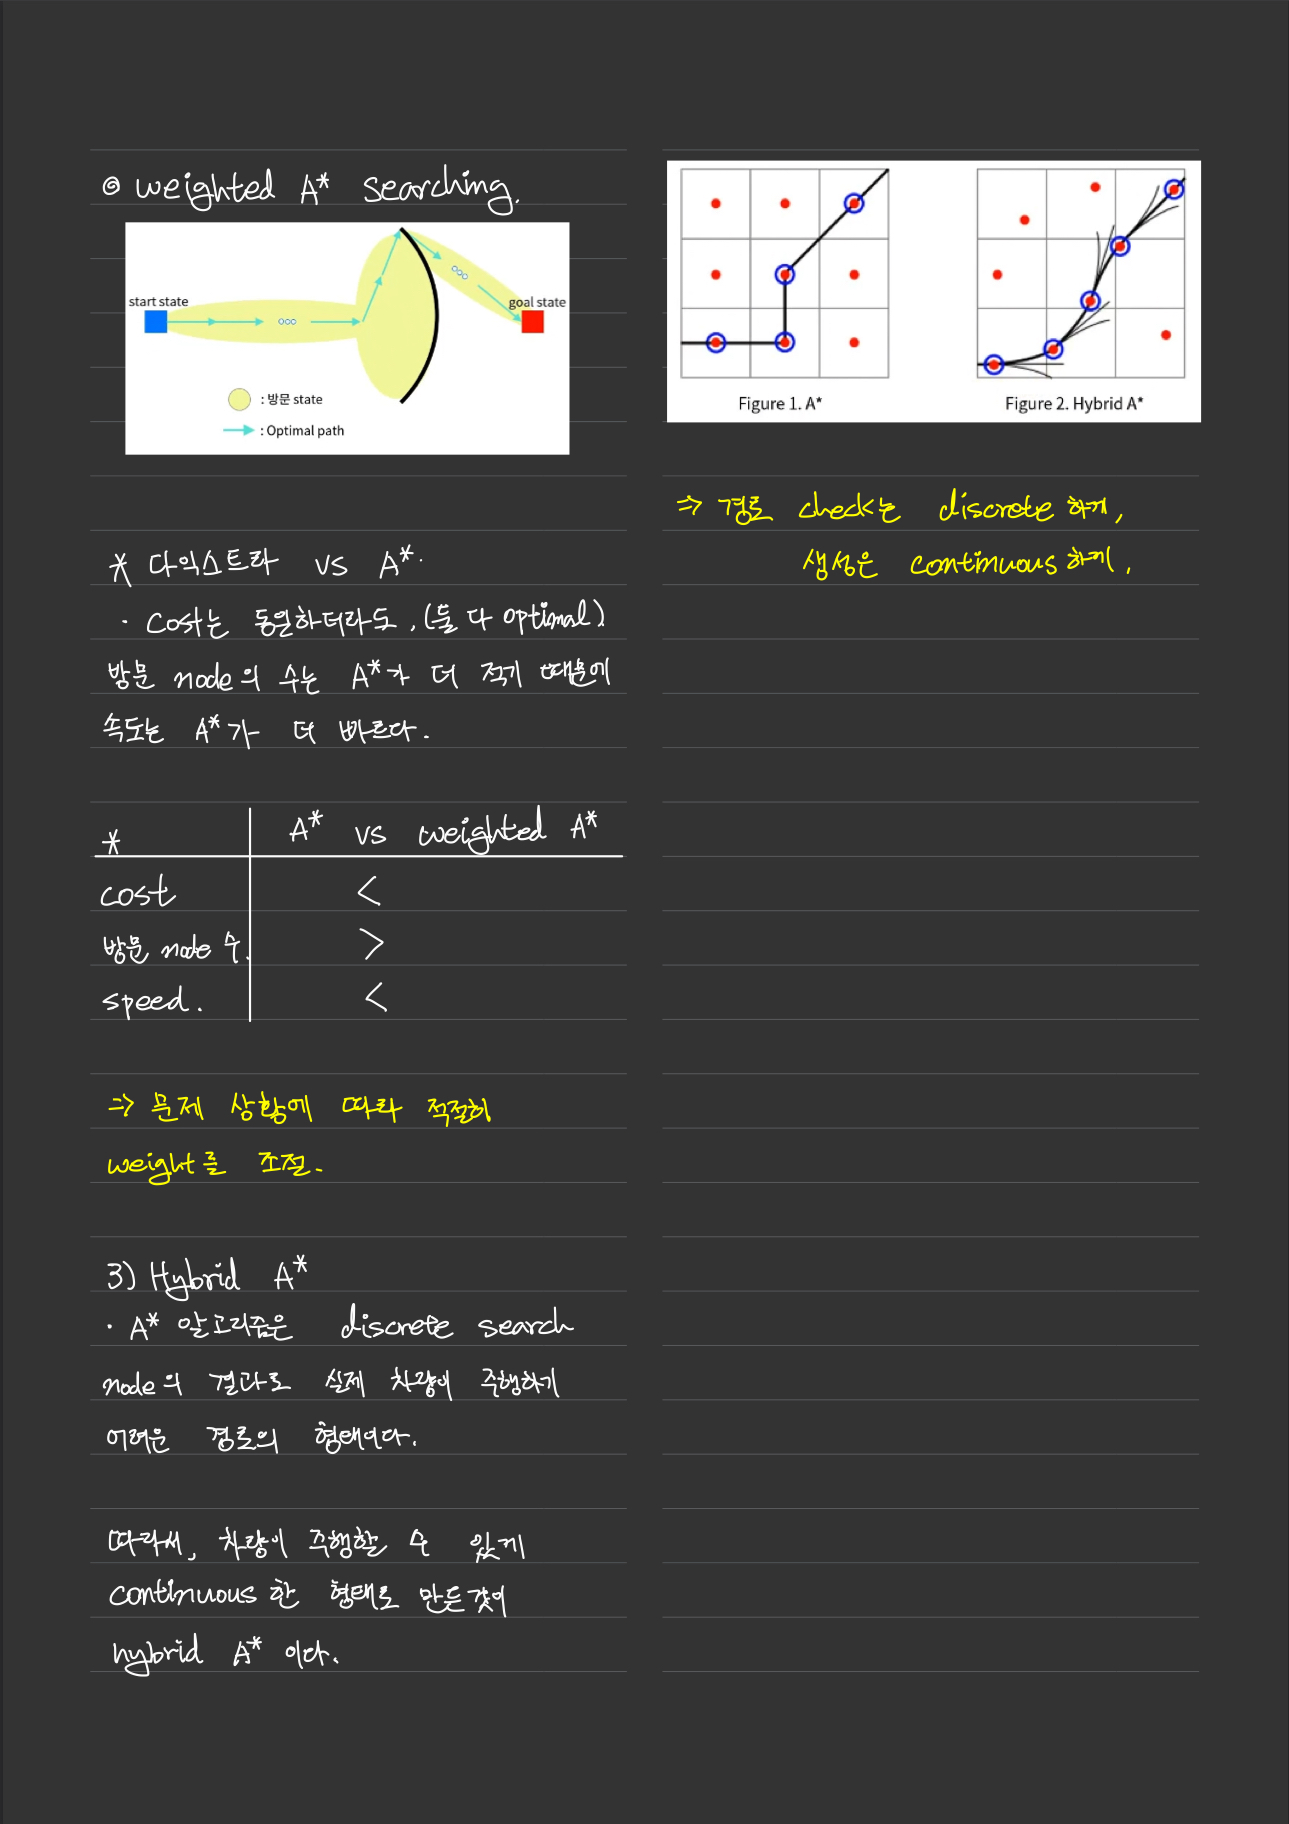 ◎ weighted A* searching.
start state
goal state
: 방문 state
: Optimal path
* 다익스트라 vs A*.
· Cost는 동일하더라도, (둘 다 optimal)
방문 node의 수는 A*가 더 적기 때문에
속도는 A*가 더 빠르다.
* A* vs weighted A*
cost <
방문 node 수. >
speed. <
⇒ 문제 상황에 따라 적절히
weight를 조절.
3) Hybrid A*
· A* 알고리즘은 discrete search
node의 결과로 실제 차량이 주행하기
어려운 경로의 형태이다.
따라서, 차량이 주행할 수 있게
continuous한 형태로 만든것이
hybrid A* 이다.
Figure 1. A*
Figure 2. Hybrid A*
⇒ 경로 check는 discrete 하게,
생성은 continuous 하게.